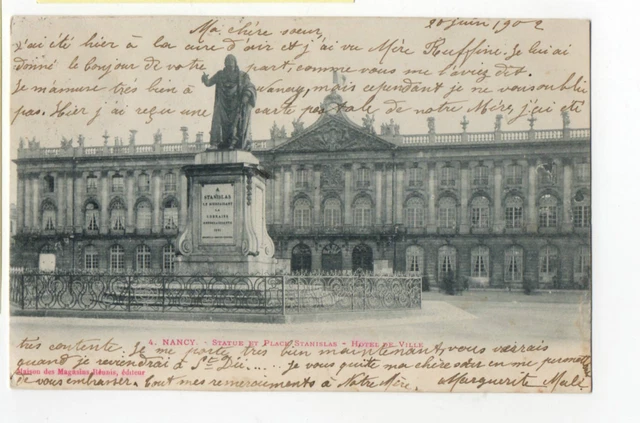 20 juin 1902
Ma chère sœur,
J'ai été hier à la cure d'air et j'ai vu Mère Ruffine. Je lui ai
donné le bonjour de votre part, comme vous me l'aviez dit.
Je m'amure très bien à Nancy, mais cependant je ne vous oubli
pas. Hier j'ai reçu une carte postale de notre Mère, j'ai été
A
STANISLAS
LE BIENFAISANT
LA
LORRAINE
RECONNAISSANTE
1831
4. NANCY. - STATUE ET PLACE STANISLAS - HÔTEL DE VILLE
très contente. Je me porte très bien maintenant, vous verrais
quand je reviendrai à St Dié..... je vous quitte ma chère sœur en me permet
Maison des Magasins-Réunis, éditeur
de vous embrasser. Tout mes remerciements à Notre Mère. Marguerite